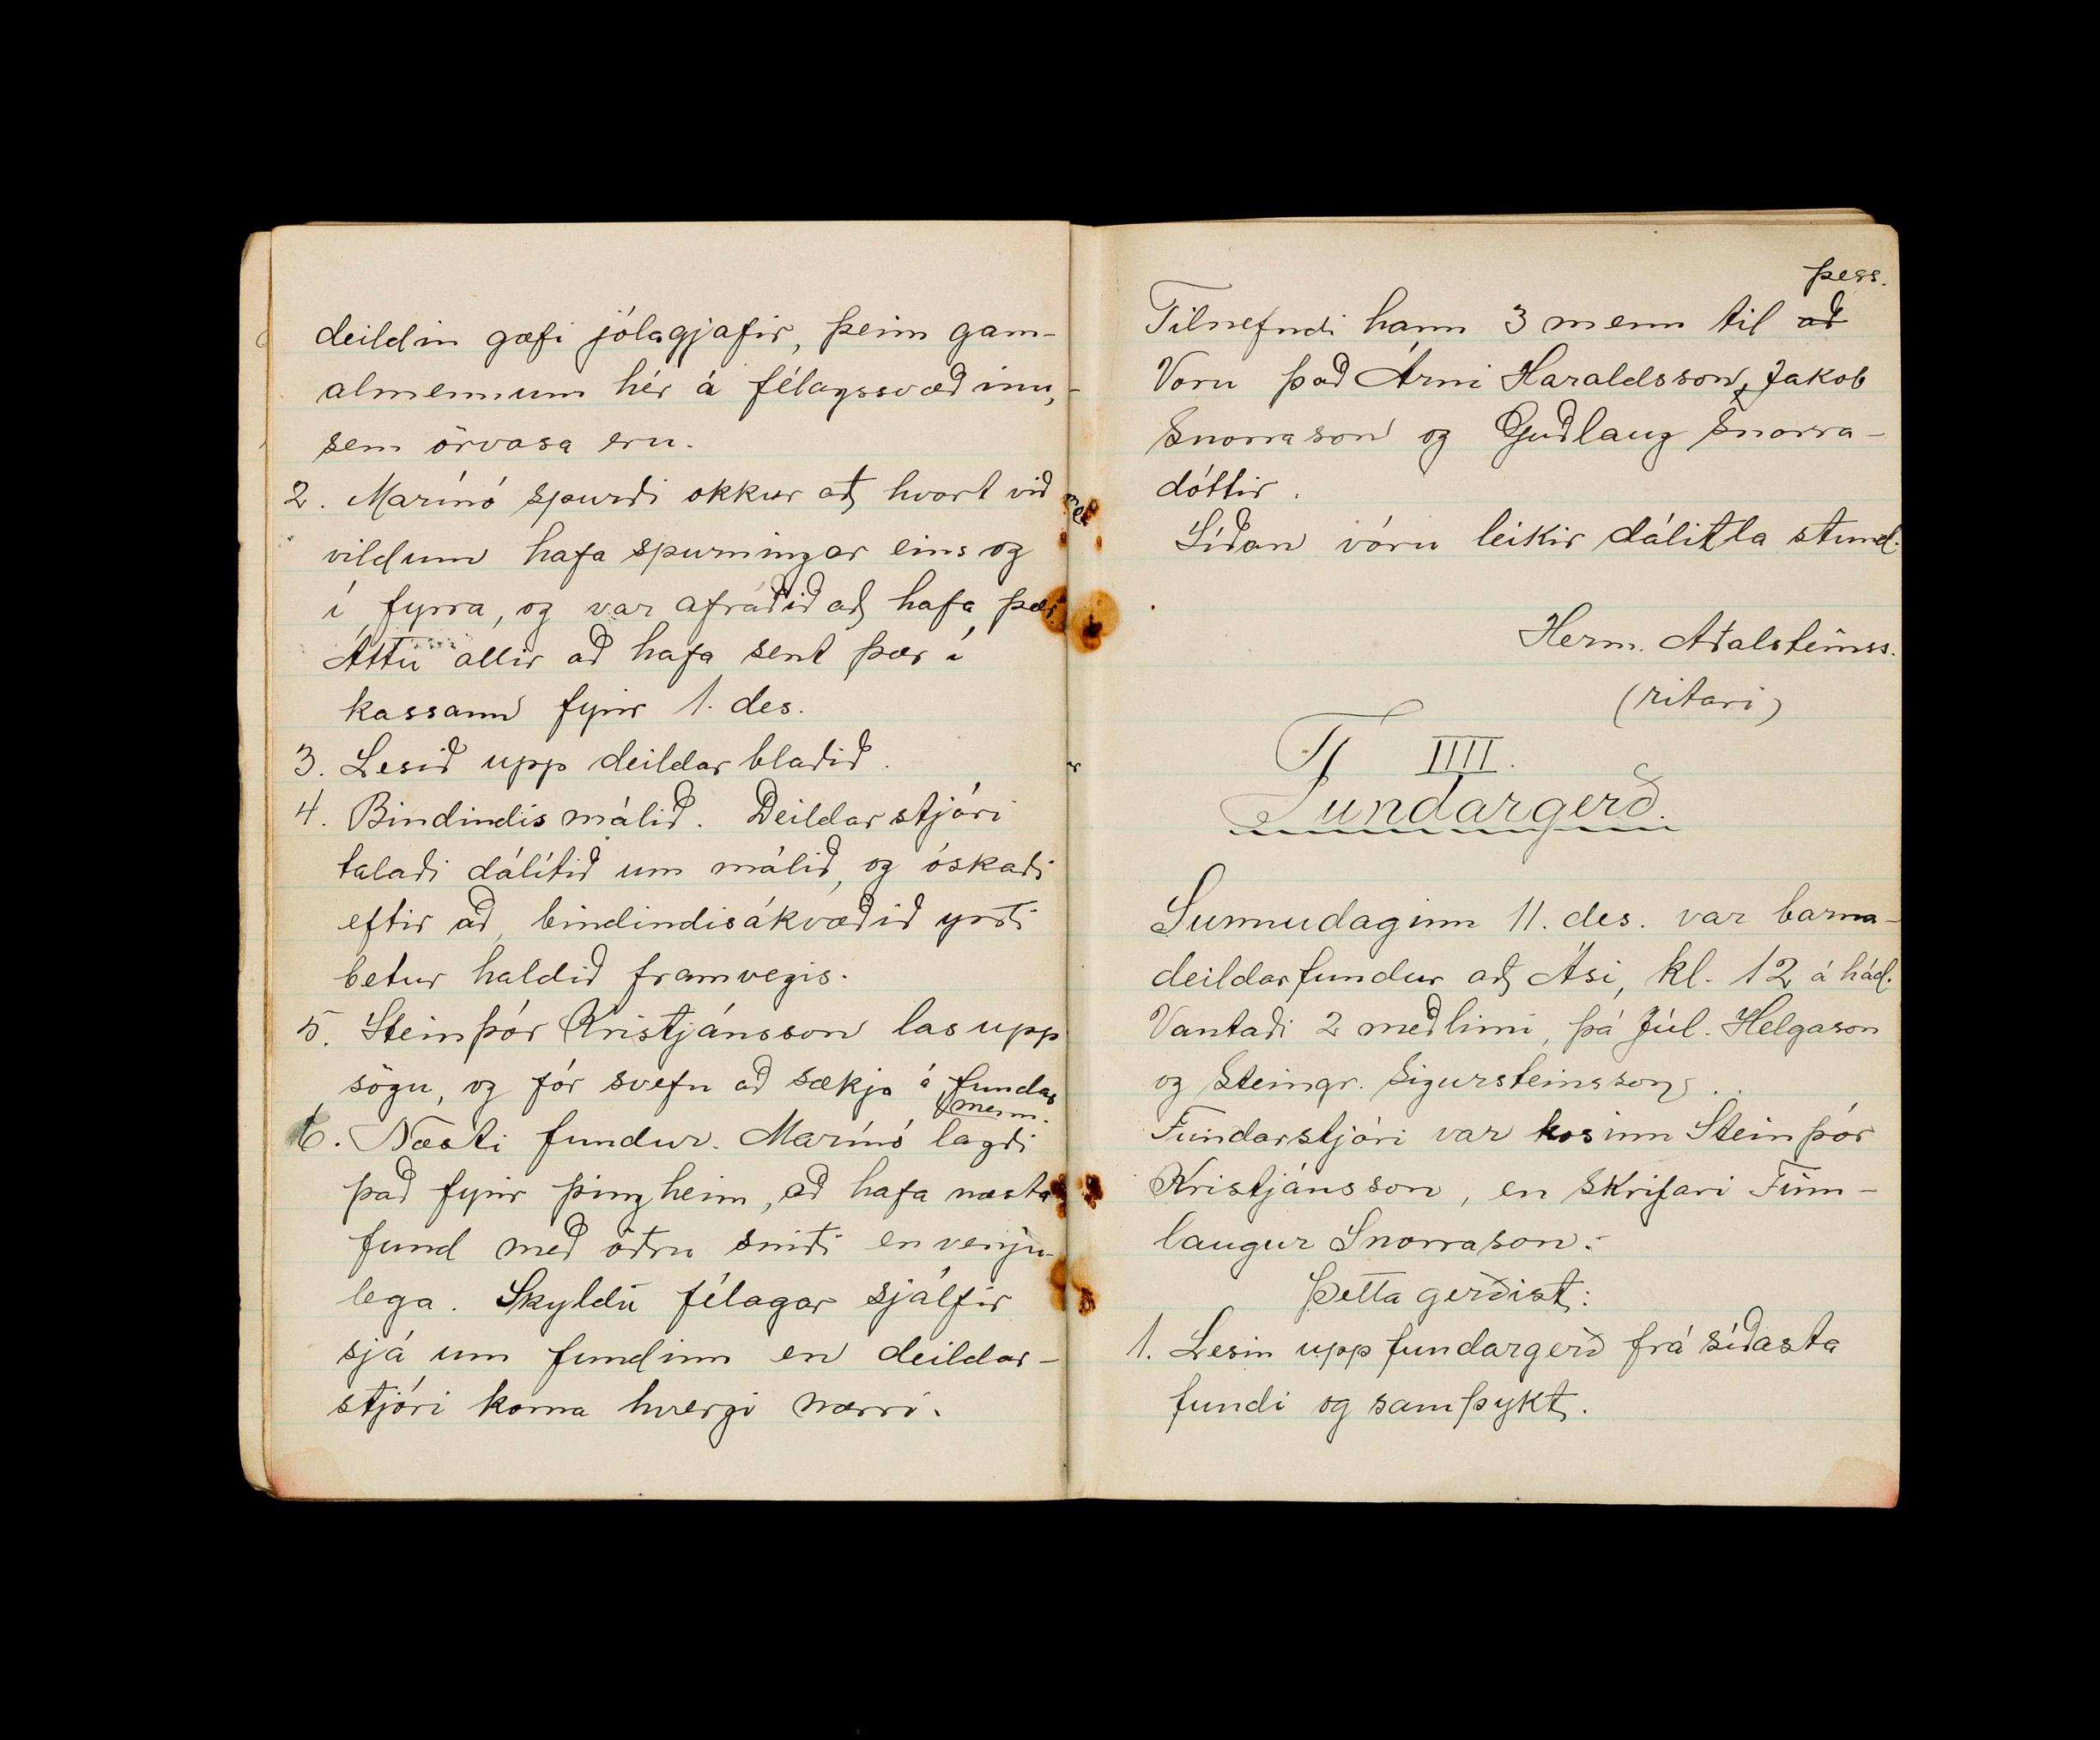 deildin gæfi jólagjafir, þeim gam-
almennum hér á félagssvæðinu,
sem örvasa eru.
2. Marínó spurði okkur að hvort við
vildum hafa spurningar eins og
í fyrra, og var afráðið að hafa þær.
Áttu allir að hafa sent þær í
kassann fyrir 1. des.
3. Lesið upp deildar blaðið.
4. Bindindismálið. Deildarstjóri
talaði dálítið um málið, og óskaði
eftir að bindindisákvæðið yrði
betur haldið framvegis.
5. Steinþór Kristjánsson las upp
sögu, og fór svefn að sækja á fundar
menn.
6. Næsti fundur. Marínó lagði
það fyrir þingheim, að hafa næsta
fund með öðru sniði en venju-
lega. Skyldu félagar sjálfir
sjá um fundinn en deildar-
stjóri koma hvergi nærri.
þess.
Tilnefndi hann 3 menn til að
Voru það Árni Haraldsson, Jakob
Snorrason og Guðlaug Snorra-
dóttir.
Síðan vóru leikir dálitla stund.
Herm. Aðalsteinss.
(ritari)
IIII.
Fundargerð.
Sunnudaginn 11. des. var barna-
deildarfundur að Ási, kl. 12 á hád.
Vantaði 2 meðlimi, þá Júl. Helgason
og Steingr. Sigursteinsson.
Fundarstjóri var kosinn Steinþór
Kristjánsson, en skrifari Finn-
laugur Snorrason.
Þetta gerðist:
1. Lesin upp fundargerð frá síðasta
fundi og samþykt.